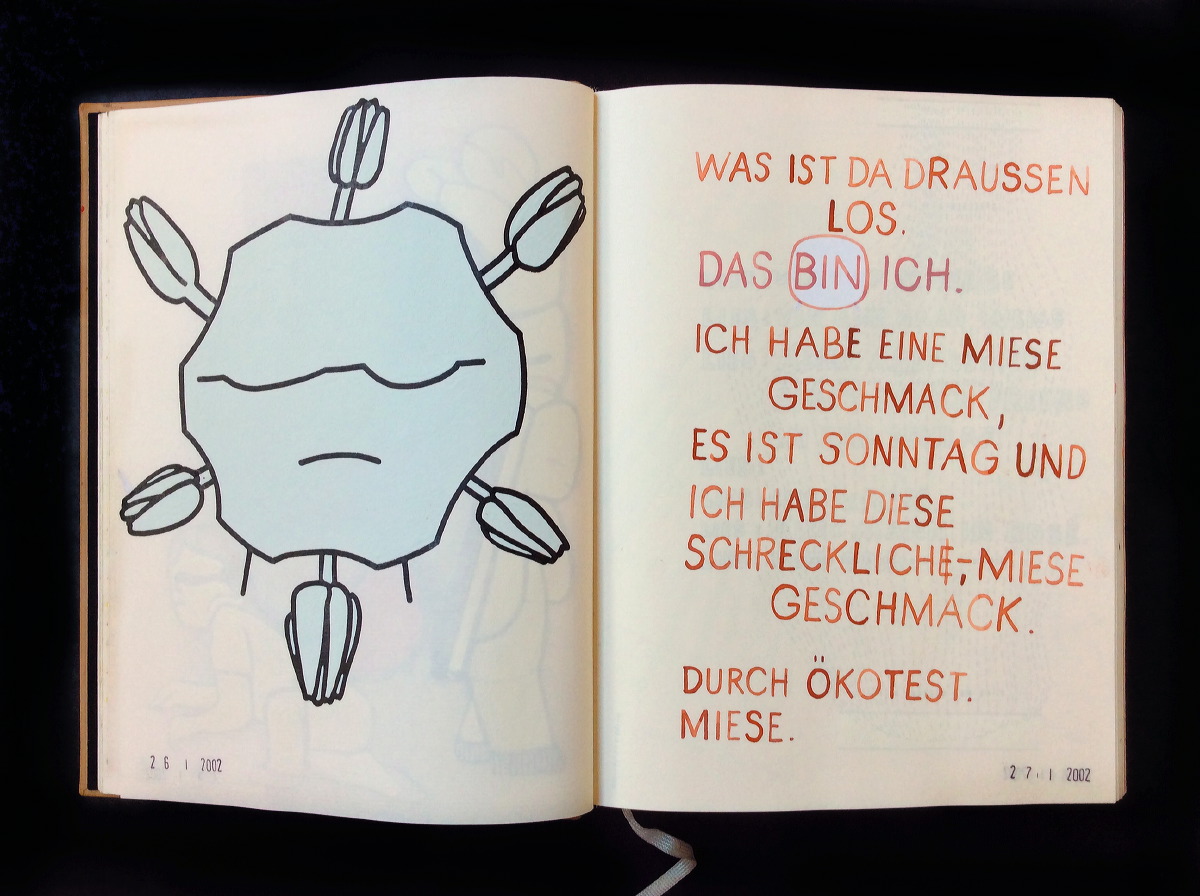 26 1 2002
WAS IST DA DRAUSSEN
LOS.
DAS BIN ICH.
ICH HABE EINE MIESE
GESCHMACK,
ES IST SONNTAG UND
ICH HABE DIESE
SCHRECKLICHE,-MIESE
GESCHMACK.
DURCH ÖKOTEST.
MIESE.
27 1 2002